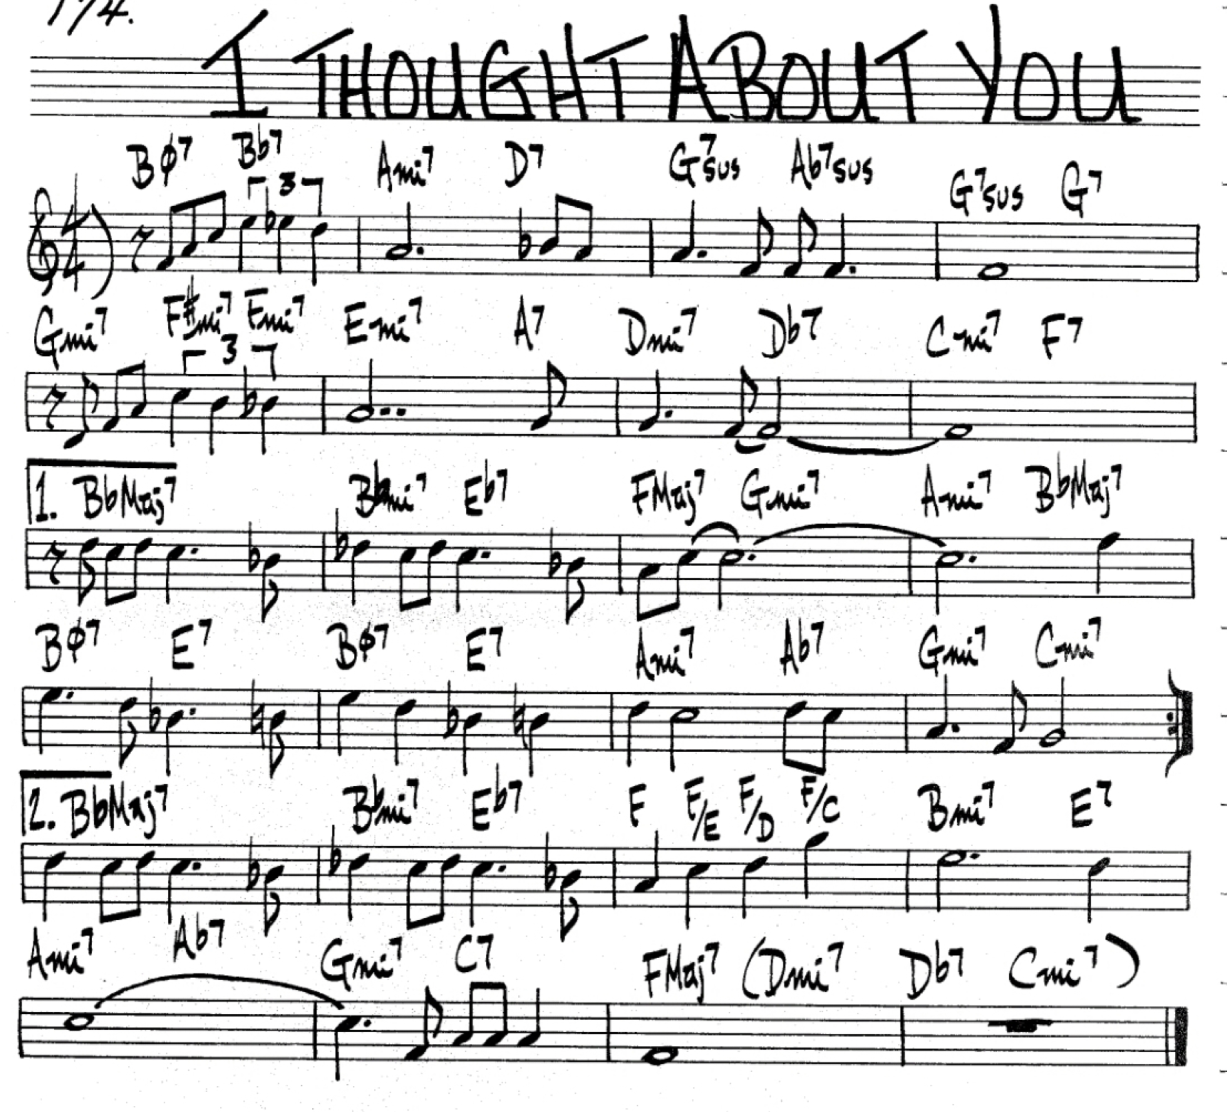 174.
I THOUGHT ABOUT YOU
Bø7 Bb7 Ami7 D7 G7sus Ab7sus G7sus G7
3
4
4
Gmi7 F#mi7 Fmi7 Emi7 A7 Dmi7 Db7 Cmi7 F7
3
1. BbMaj7 Bbmi7 Eb7 FMaj7 Gmi7 Ami7 BbMaj7
Bø7 E7 Bø7 E7 Ami7 Ab7 Gmi7 Cmi7
2. BbMaj7 Bbmi7 Eb7 F F/E F/D F/C Bmi7 E7
Ami7 Ab7 Gmi7 C7 FMaj7 (Dmi7 Db7 Cmi7)